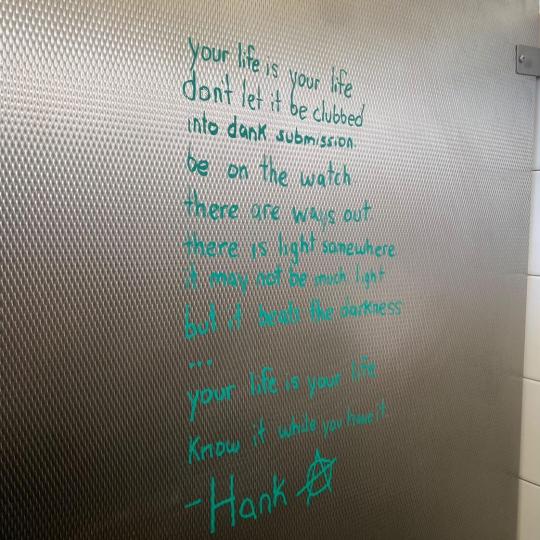 your life is your life
don't let it be clubbed
into dank submission.
be on the watch
there are ways out.
there is light somewhere.
it may not be much light
but it beats the darkness
...
your life is your life
Know it while you have it.
-Hank